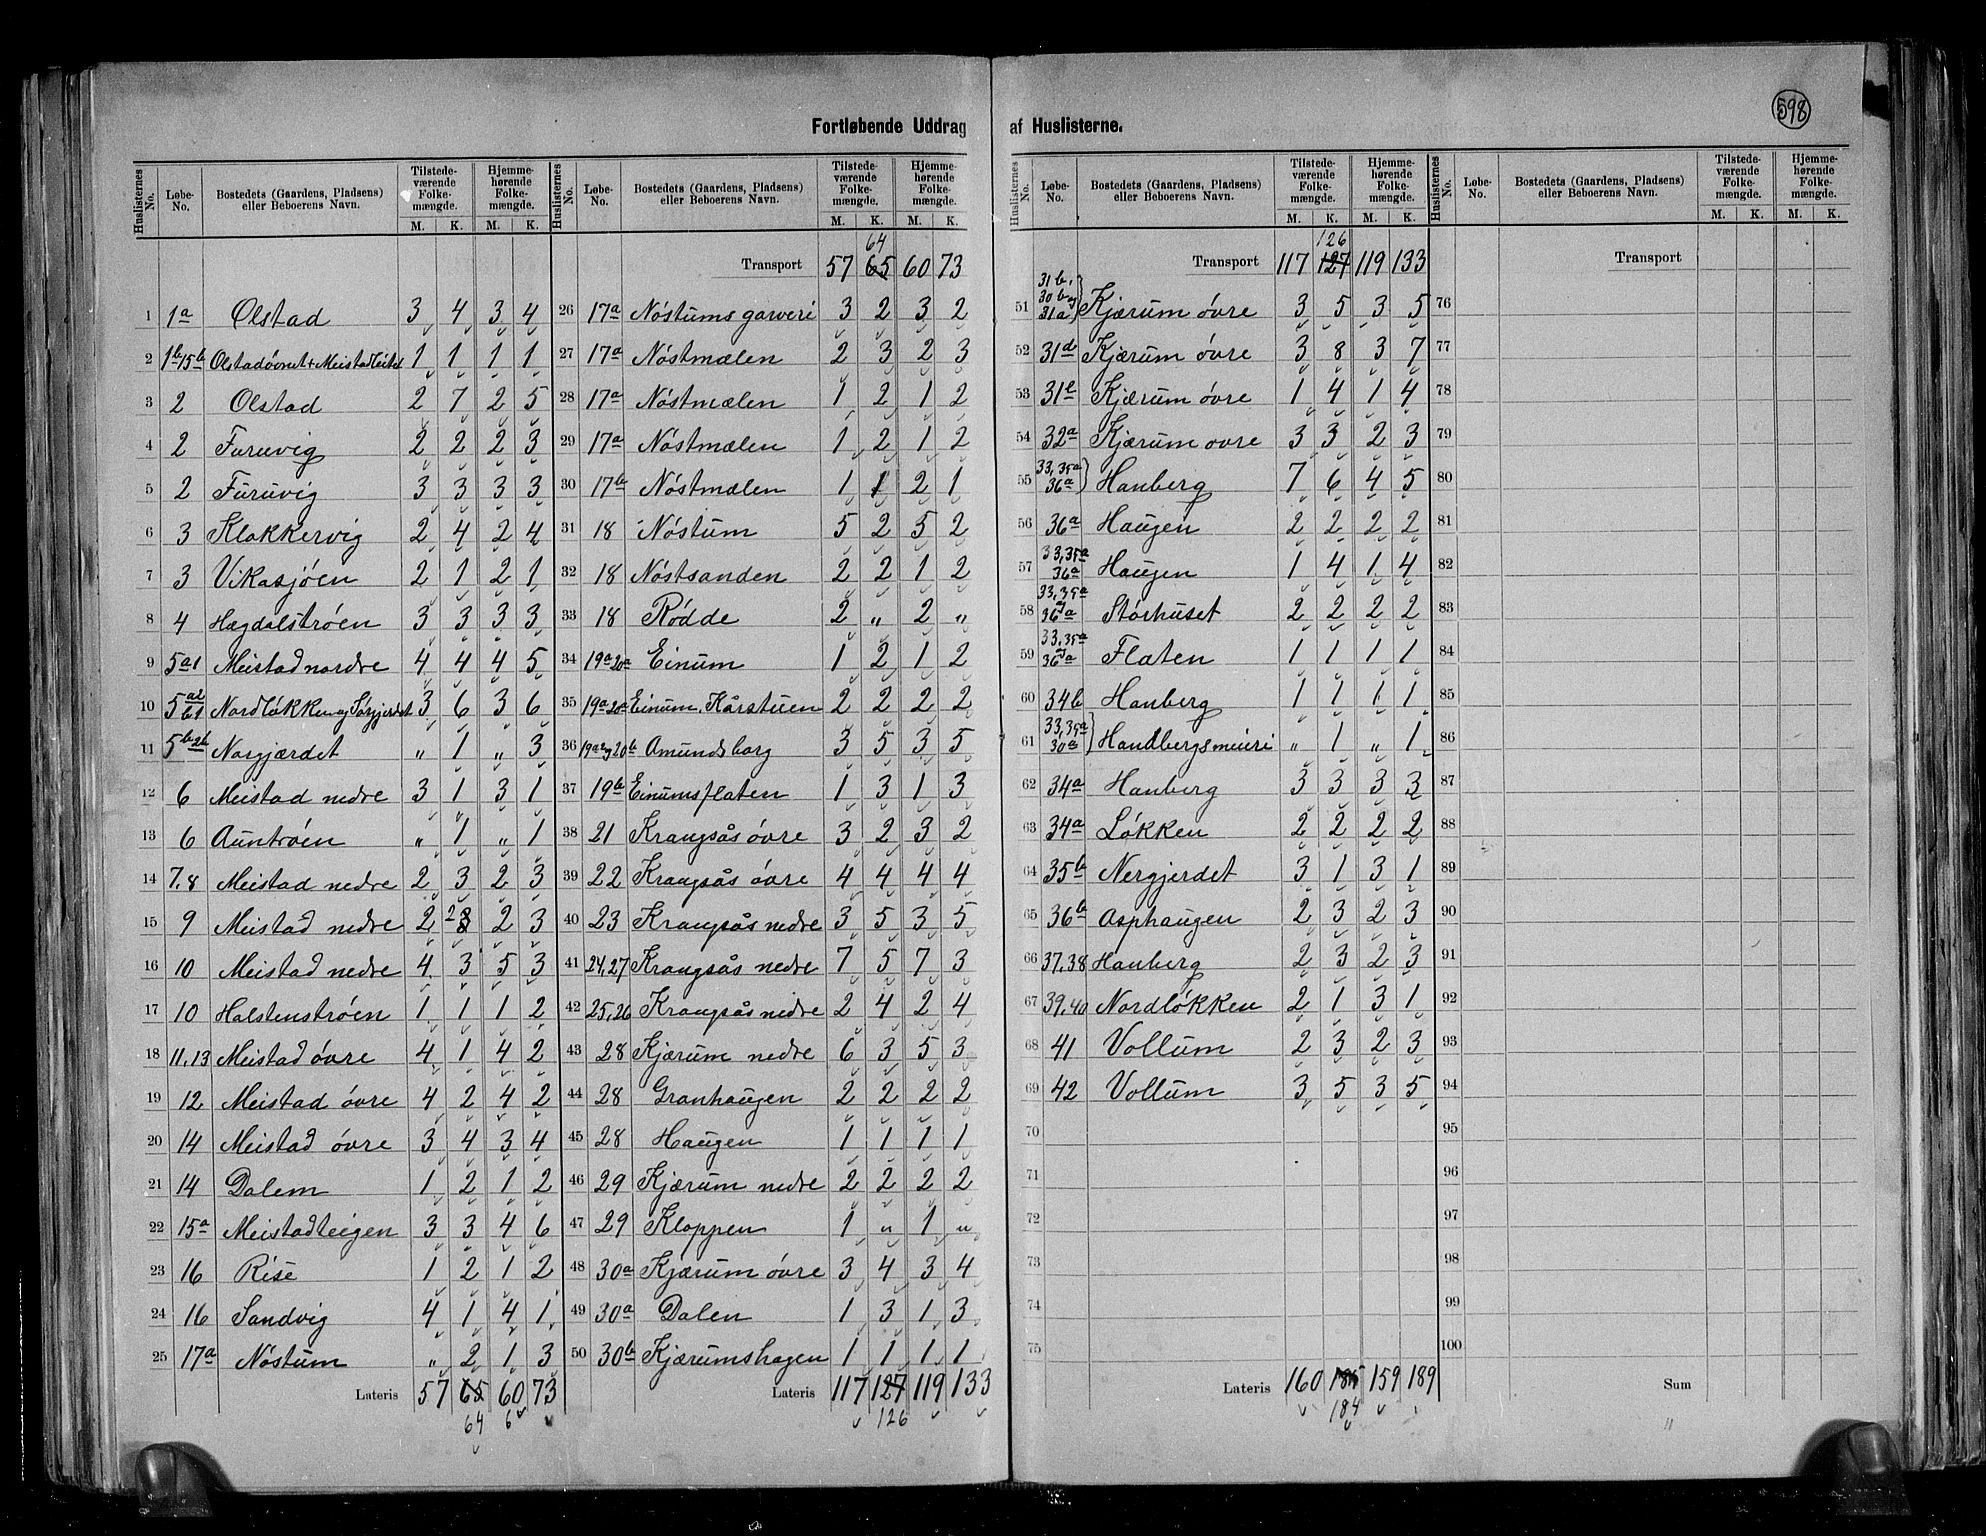 598
Fortløbende Uddrag af Huslisterne.
Huslisternes No. Løbe-No. Bostedets (Gaardens, Pladsens) eller Beboerens Navn. Tilstedeværende Folkemængde. M. K. Hjemmehørende Folkemængde. M. K.
1 1a Olstad 3 4 3 4
2 1b 15b 1 1 1 1
3 2 Olstad 2 7 2 5
4 2 Furuvig 2 2 2 3
5 2 Furuvig 3 3 3 3
6 3 Klokkervig 2 4 2 4
7 3 Vikasjöen 2 1 2 1
8 4 Hægdalströen 3 3 3 3
9 5a1 Meistad nordre 4 4 4 5
10 5a2 61 Nordlökken og Sörgjerdet 3 6 3 6
11 5b 2b Norgjærdet „ 1 „ 3
12 6 Meistad nedre 3 1 3 1
13 6 Auntröen „ 1 „ 1
14 7,8 Meistad nedre 2 3 2 3
15 9 Meistad nedre 2 2 2 3
16 10 Meistad nedre 4 3 5 3
17 10 Halstenströen 1 1 1 2
18 11,13 Meistad övre 4 1 4 2
19 12 Meistad övre 4 2 4 2
20 14 Meistad övre 3 4 3 4
21 14 Dalem 1 2 1 2
22 15a Meistadteigen 3 3 4 6
23 16 Rise 1 2 1 2
24 16 Sandvig 4 1 4 1
25 17a Nöstum „ 2 1 3
Lateris 57 65 60 73
64 6
Huslisternes No. Løbe-No. Bostedets (Gaardens, Pladsens) eller Beboerens Navn. Tilstedeværende Folkemængde. M. K. Hjemmehørende Folkemængde. M. K.
64
Transport 57 65 60 73
26 17a Nöstums garveri 3 2 3 2
27 17a Nöstmælen 2 3 2 3
28 17a Nöstmælen 1 2 1 2
29 17a Nöstmælen 1 2 1 2
30 17b Nöstmælen 1 1 2 1
31 18 Nöstum 5 2 5 2
32 18 Nöstsanden 2 2 1 2
33 18 Rödde 2 „ 2 „
34 19a 20a Einum 1 2 1 2
35 19a 20a Einum, Kårstuen 2 2 2 2
36 19a2 og 20b Amundsborg 3 5 3 5
37 19b Einumsflaten 1 3 1 3
38 21 Krangsås övre 3 2 3 2
39 22 Krangsås övre 4 4 4 4
40 23 Krangsås nedre 3 5 3 5
41 24,27 Krangsås nedre 7 5 7 3
42 25,26 Krangsås nedre 2 4 2 4
43 28 Kjærum nedre 6 3 5 3
44 28 Granhaugen 2 2 2 2
45 28 Haugen 1 1 1 1
46 29 Kjærum nedre 2 2 2 2
47 29 Kloppen 1 „ 1 „
48 30a Kjærum övre 3 4 3 4
49 30a Dalen 1 3 1 3
50 30b Kjærumshagen 1 1 1 1
Lateris 117 127 119 133
126
Huslisternes No. Løbe-No. Bostedets (Gaardens, Pladsens) eller Beboerens Navn. Tilstedeværende Folkemængde. M. K. Hjemmehørende Folkemængde. M. K.
126
Transport 117 127 119 133
51 31b, 30b og 31a Kjærum övre 3 5 3 5
52 31d Kjærum övre 3 8 3 7
53 31e Kjærum övre 1 4 1 4
54 32a Kjærum ovre 3 3 2 3
55 33,35a 36a Hanberg 7 6 4 5
56 36a Haugen 2 2 2 2
57 33,35a 36a Haugen 1 4 1 4
58 33,35a og 36a Storhuset 2 2 2 2
59 33,35a og 36a Flaten 1 1 1 1
60 34b Hanberg 1 1 1 1
61 33,35a 30a Handbergsmeieri „ 1 „ 1
62 34a Hanberg 3 3 3 3
63 34a Lökken 2 2 2 2
64 35b Nergjerdet 3 1 3 1
65 36b Asphaugen 2 3 2 3
66 37,38 Hanberg 2 3 2 3
67 39,40 Nordlökken 2 1 3 1
68 41 Vollum 2 3 2 3
69 42 Vollum 3 5 3 5
70
71
72
73
74
75
Lateris 160 185 159 189
184
Huslisternes No. Løbe-No. Bostedets (Gaardens, Pladsens) eller Beboerens Navn. Tilstedeværende Folkemængde. M. K. Hjemmehørende Folkemængde. M. K.
Transport
76
77
78
79
80
81
82
83
84
85
86
87
88
89
90
91
92
93
94
95
96
97
98
99
100
Sum